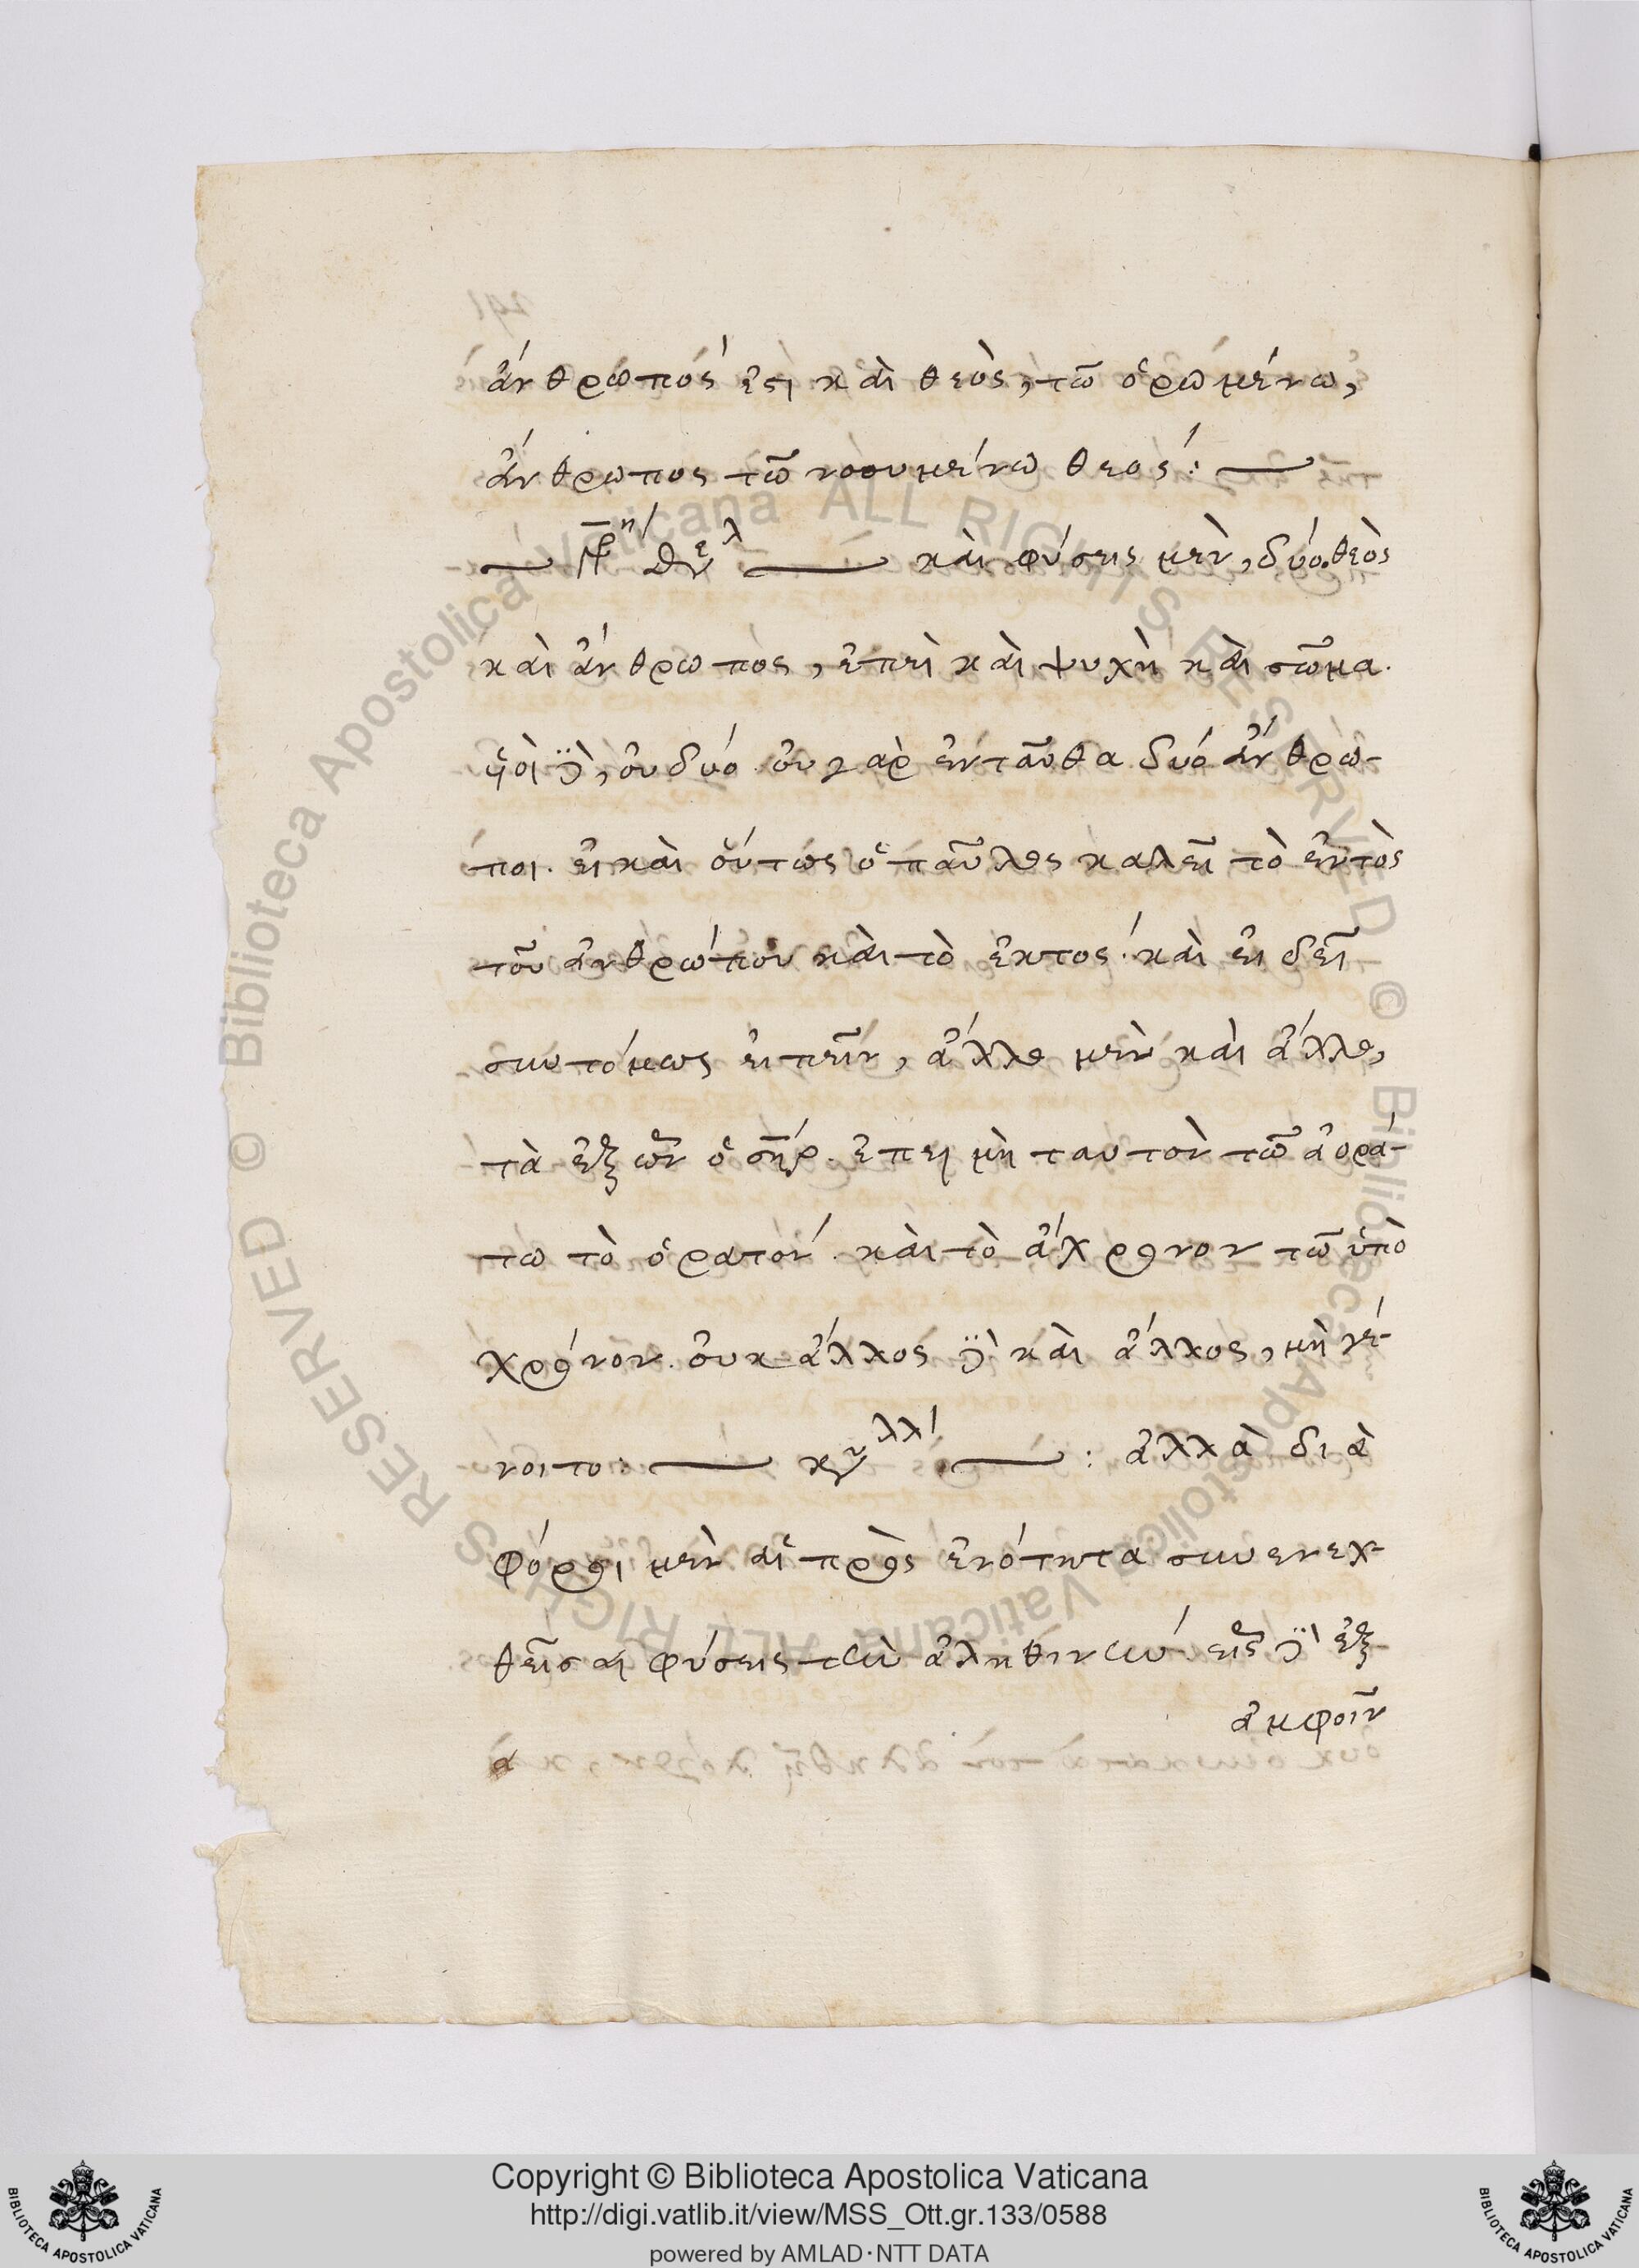 ἄνθρωπός ἐστι καὶ θεὸς, τῶ ὁρωμένω,
ἄνθρωπος τῶ νοουμένω θεός:
καὶ φύσεις μὲν, δύο. θεὸς
καὶ ἄνθρωπος, ἐπεὶ καὶ ψυχὴ καὶ σῶμα.
υἱοὶ δὲ, οὐ δύο. οὐ γὰρ ἐνταῦθα δύο ἄνθρω-
ποι. εἰ καὶ οὕτως ὁ παῦλος καλεῖ τὸ ἐντὸς
τοῦ ἀνθρώπου καὶ τὸ ἐκτος. καὶ εἰ δεῖ
συντόμως εἰπεῖν, ἄλλο μὲν καὶ ἄλλο,
τὰ ἐξ ὧν ὁ σηρ. ἐπει μὴ ταυτὸν τῶ ἀορά-
τω τὸ ὁρατόν. καὶ τὸ ἄχρονον τῶ ὑπὸ
χρόνον. οὐκ ἄλλος δὲ καὶ ἄλλος, μὴ γέ-
νοιτο: ἀλλὰ διὰ
φόροι μὲν αἱ πρὸς ἑνότητα συνενεχ-
θεῖσαι φύσεις τὴν ἀληθινήν. εἷς δὲ ἐξ
ἀμφοῖν
Copyright © Biblioteca Apostolica Vaticana
http://digi.vatlib.it/view/MSS_Ott.gr.133/0588
powered by AMLAD·NTT DATA
BIBLIOTECA APOSTOLICA VATICANA
BIBLIOTECA APOSTOLICA VATICANA
© Biblioteca Apostolica Vaticana ALL RIGHTS RESERVED © Biblioteca Apostolica Vaticana ALL RIGHTS RESERVED